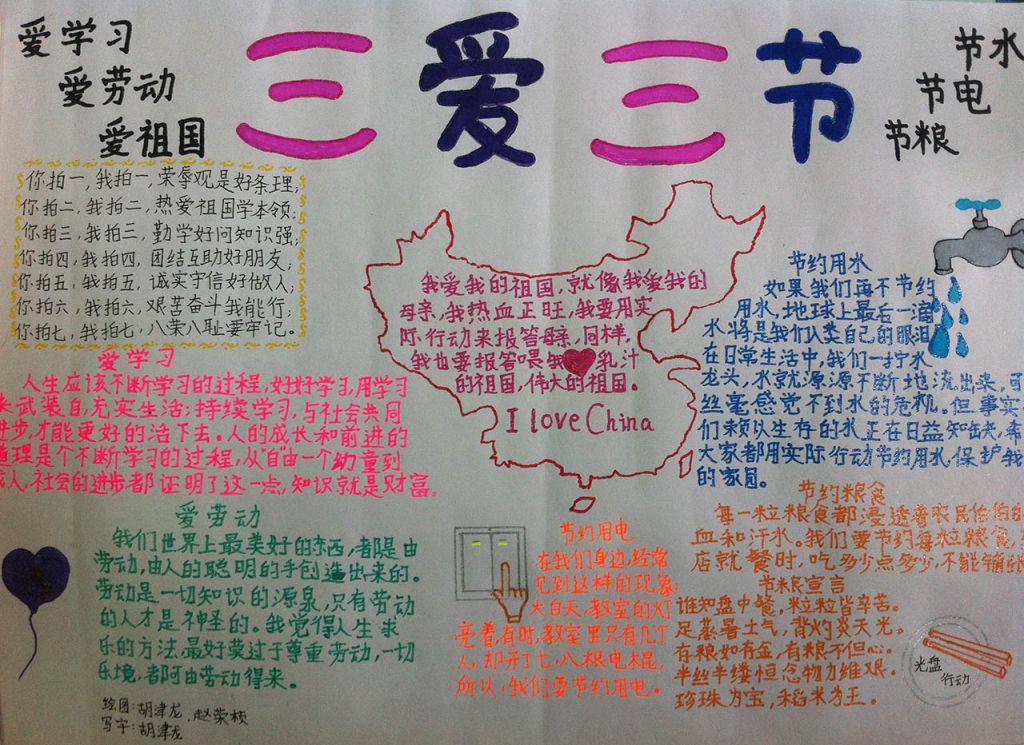 爱学习
爱劳动
爱祖国
三爱三节
节水
节电
节粮
你拍一,我拍一,荣辱观是好条理;
你拍二,我拍二,热爱祖国学本领;
你拍三,我拍三,勤学好问知识强;
你拍四,我拍四,团结互助好朋友;
你拍五,我拍五,诚实守信好做人;
你拍六,我拍六,艰苦奋斗我能行;
你拍七,我拍七,八荣八耻要牢记。
爱学习
人生应该不断学习的过程,好好学习,用学习
来武装自,充实生活;持续学习,与社会共同
进步,才能更好的活下去。人的成长和前进的
道理是个不断学习的过程,从"自"由一个幼童到
成人,社会的进步都证明了这一点,知识就是财富。
爱劳动
我们世界上最美好的东西,都是由
劳动,由人的聪明的手创造出来的。
劳动是一切知识的源泉,只有劳动
的人才是神圣的。我觉得人生求
乐的方法,最好莫过于尊重劳动,一切
乐境,都阿由劳动得来。
绘图:胡津龙、赵荣桢
写字:胡津龙
我爱我的祖国,就像我爱我的
母亲,我热血正旺,我要用实
际行动来报答母亲,同样,
我也要报答喂我乳汁
的祖国,伟大的祖国。
I love China
节约用电
在我们身边,经常
见到这样的现象:
大白天,教室的灯
亮着,有时,教室里只有几个
人,却开了七、八根电棍,
所以,我们要节约用电。
节约用水
如果我们再不节约
用水,地球上最后一滴
水将是我们人类自己的眼泪
在日常生活中,我们一拧水
龙头,水就源源不断地流出来,可
丝毫感觉不到水的危机。但事实
们赖以生存的水正在日益短缺,希
大家都用实际行动节约用水,保护我
的家园。
节约粮食
每一粒粮食都浸透着农民伯伯的
血和汗水。我们要节约每粒粮食,
店就餐时,吃多少点多少,不能铺张
节粮宣言
谁知盘中餐,粒粒皆辛苦。
足蒸暑土气,背灼炎天光。
存粮如存金,有粮不但心。
半丝半缕恒念物力维艰。
珍珠为宝,稻米为王。
光盘
行动